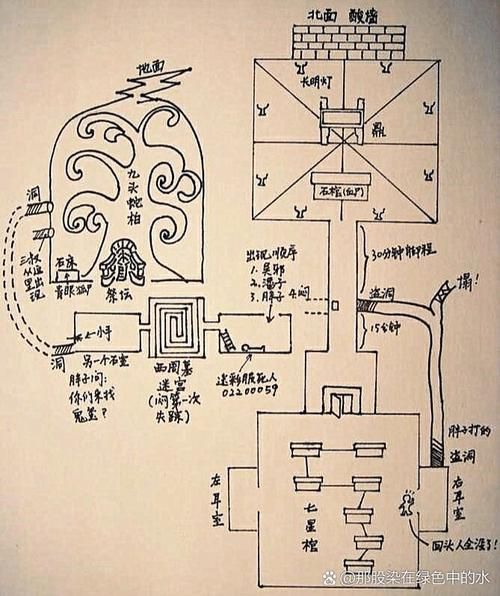 北面 酸墙
长明灯
鼎
石棺(血尸)
地面
九头蛇柏
洞
三叔
从这
里出
现
石床
青眼狐尸
祭坛
出现顺序
1. 吴邪
2. 潘子
3. 胖子 4.闷
30分钟脚程
盗洞
塌!
15分钟
小手
洞
另一个石室
胖子问:
你们来找
鬼玺?
西周墓
迷宫
(闷第一次
失踪)
迷彩服死人
02200059
胖子打的
盗洞
左耳室
右耳室
七星棺
回头人全没了!
@那股染在绿色中的水